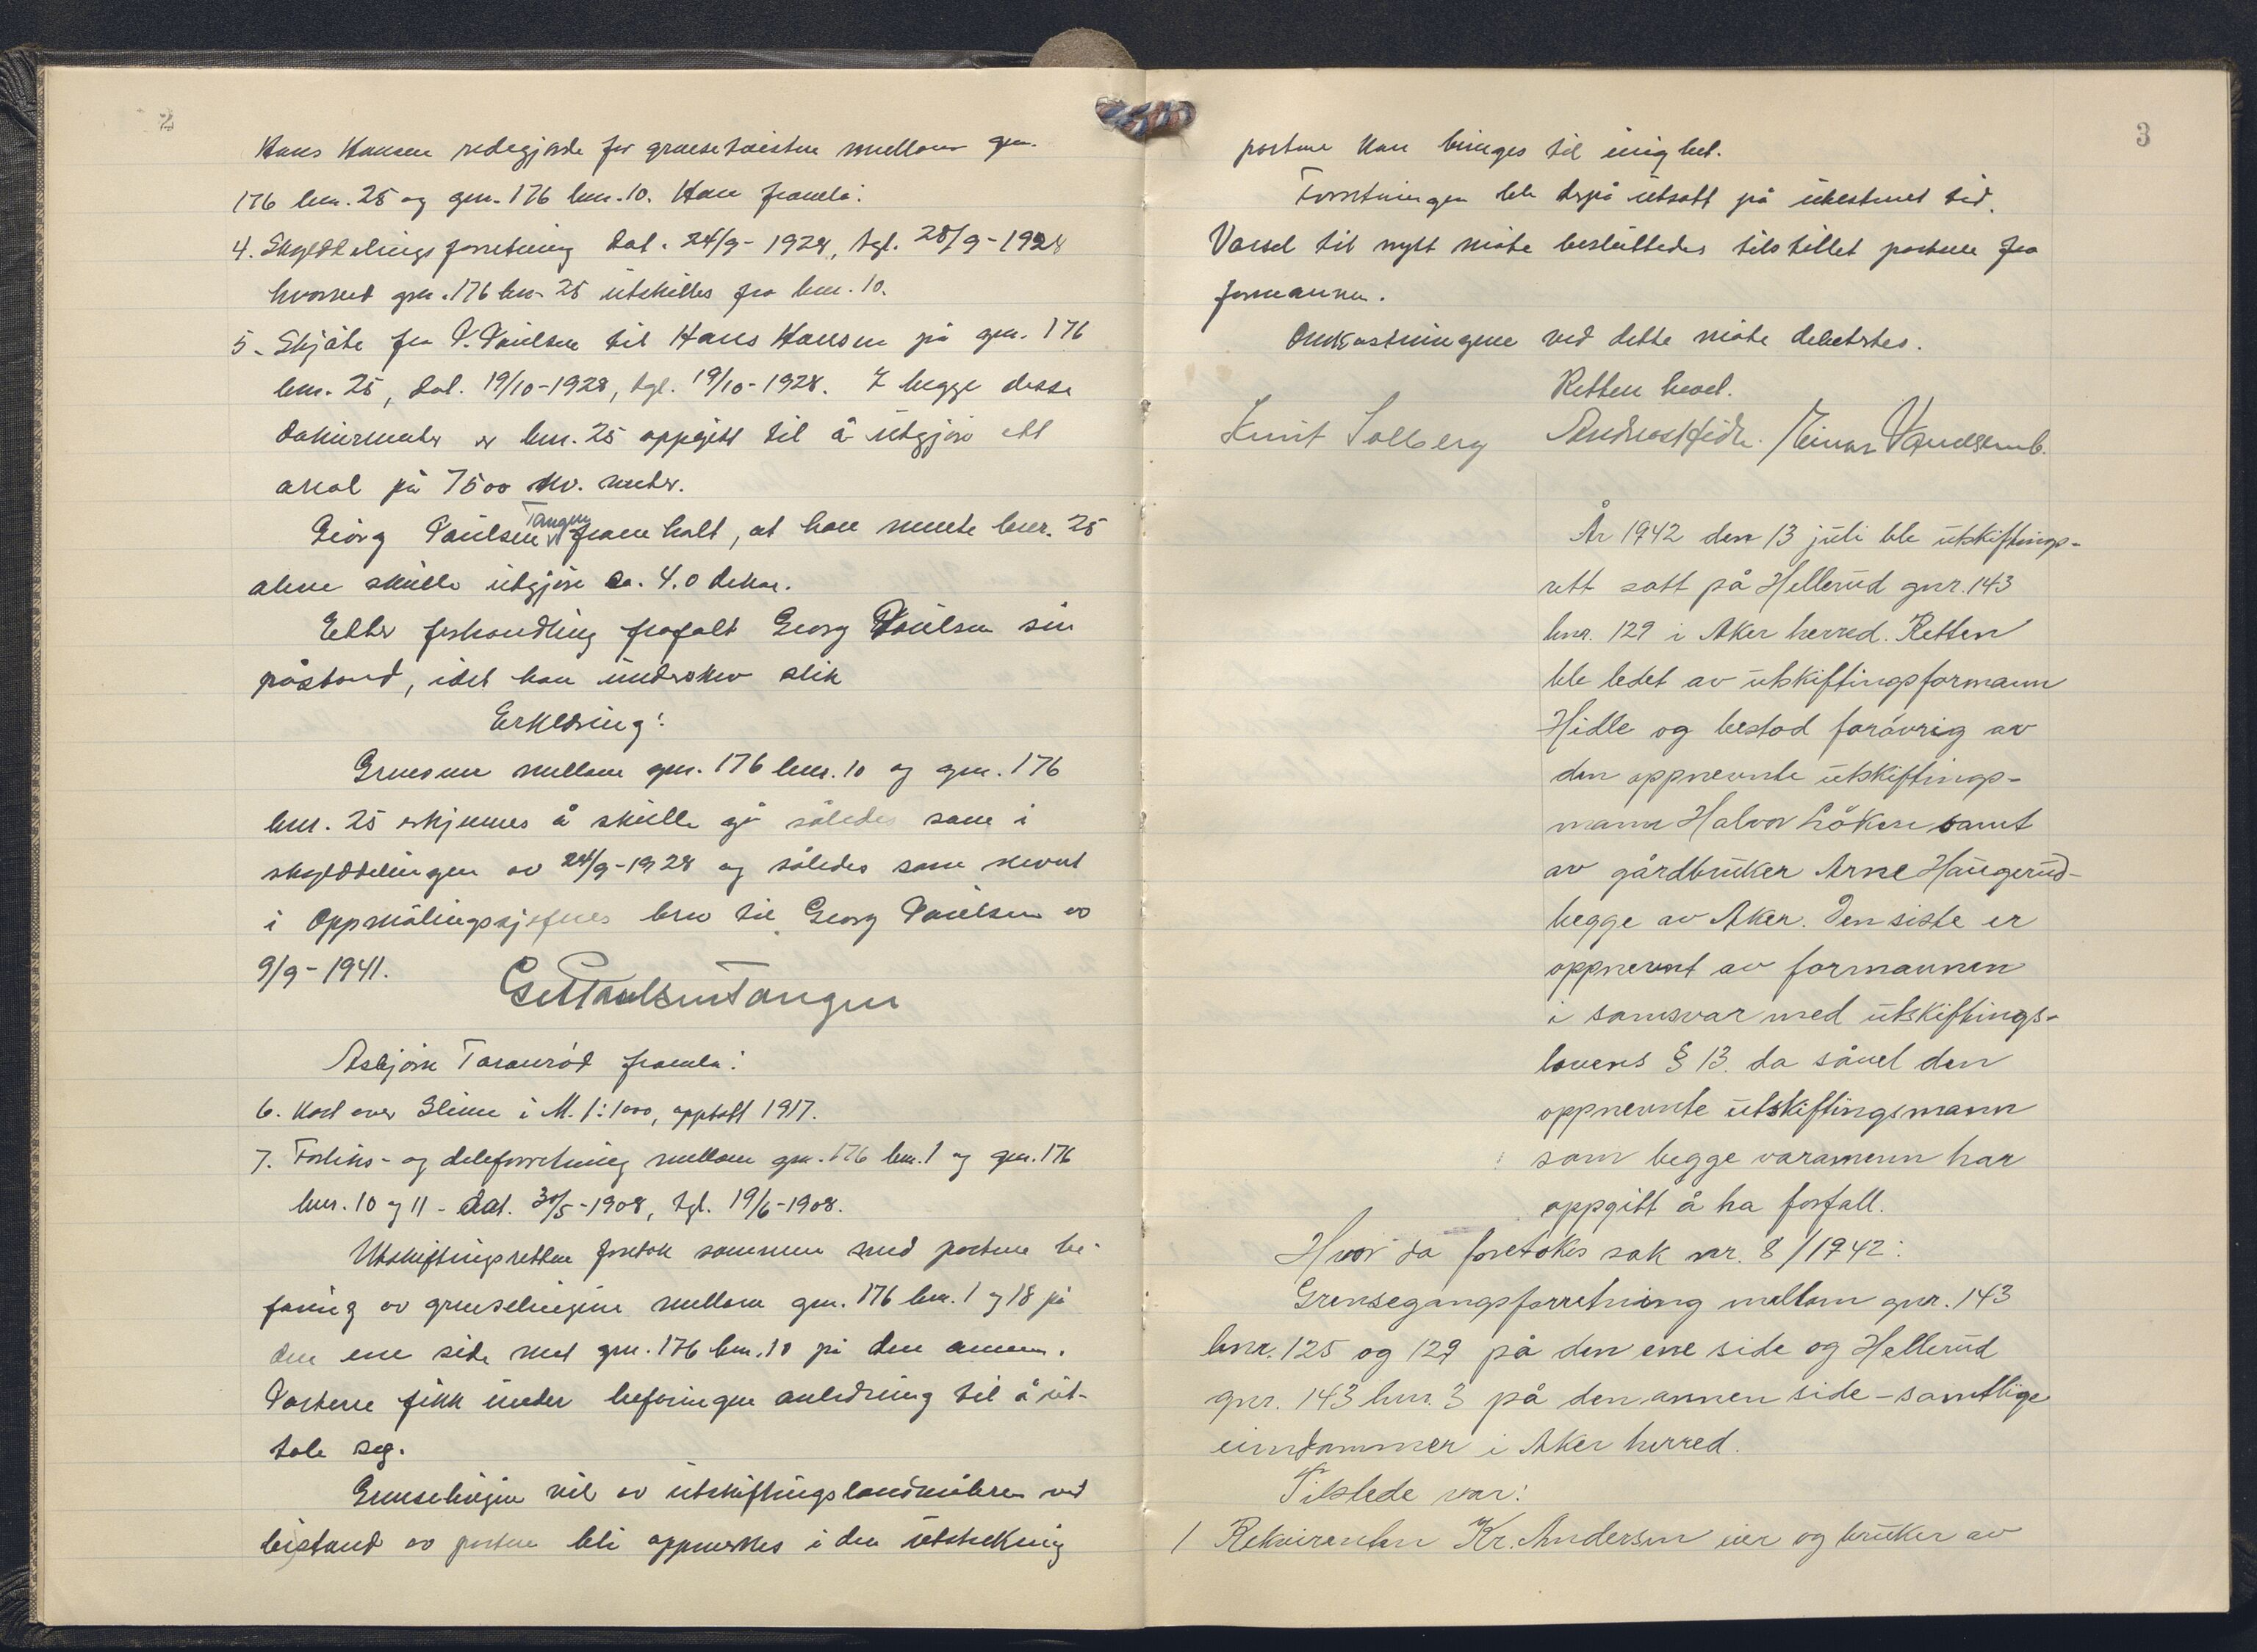 2
Hans Hansen redegjorde for grensetvisten mellom gnr.
176 bnr. 25 og gnr. 176 bnr. 10. Han framla:
4. Skylddelingsforretning dat. 24/9-1928, tgl. 28/9-1928
hvorved gnr. 176 bnr. 25 utskilles fra bnr. 10.
5. Skjøte fra P. Paulsen til Hans Hansen på gnr. 176
bnr. 25, dat. 19/10-1928, tgl. 19/10-1928. I begge disse
dokumenter er bnr. 25 oppgitt til å utgjøre ett
areal på 7500 kv. meter.
Georg Paulsen Tangen framholt, at han mente bnr. 25
alene skulle utgjøre ca. 4.0 dekar.
Etter forhandling frafalt Georg Paulsen sin
påstand, idet han underskrev slik
Erklæring:
Grensen mellom gnr. 176 bnr. 10 og gnr. 176
bnr. 25 erkjennes å skulle gå således som i
skylddelingen av 24/9-1928 og således som nevnt
i Oppmålingssjefens brev til Georg Paulsen av
9/9-1941.
G. Paulsen Tangen
Asbjørn Taranrød framla:
6. Kart over Slime i M. 1:1000, opptatt 1917.
7. Forliks- og deleforretning mellom gnr. 176 bnr. 1 og gnr. 176
bnr. 10 og 11 - dat. 30/5-1908, tgl. 19/6-1908.
Utskiftingsretten foretok sammen med partene be-
faring av grenselinjene mellom gnr. 176 bnr. 1 og 18 på
den ene side mot gnr. 176 bnr. 10 på den annen.
Partene fikk under befaringen anledning til å ut-
tale seg.
Grenselinjen vil av utskiftingslandmåleren ved
bistand av partene bli oppmerket i den utstrekning
3
partene kan bringes til enighet.
Forretningen ble derpå utsatt på ubestemt tid.
Varsel til nytt møte besluttedes tilstillet partene fra
formannen.
Omkostningene ved dette møte debetertes.
Retten hevet.
Knut Solberg Andreas Hidle. Einar
År 1942 den 13 juli ble utskiftings-
rett satt på Hellerud gnr. 143
bnr. 129 i Aker herred. Retten
ble ledet av utskiftingsformann
Hidle og bestod forøvrig av
den oppnevnte utskiftings-
mann Halvor Løken samt
av gårdbruker Arne Haugerud-
begge av Aker. Den siste er
oppnevnt av formannen
i samsvar med utskiftings-
lovens § 13. da såvel den
oppnevnte utskiftingsmann
som begge varamenn har
oppgitt å ha forfall.
Hvor da foretokes sak nr. 8/1942:
Grensegangsforretning mellom gnr. 143
bnr. 125 og 129 på den ene side og Hellerud
gnr. 143 bnr. 3 på den annen side - samtlige
eiendommer i Aker herred.
Tilstede var:
1 Rekvirenten Kr. Andersen eier og bruker av